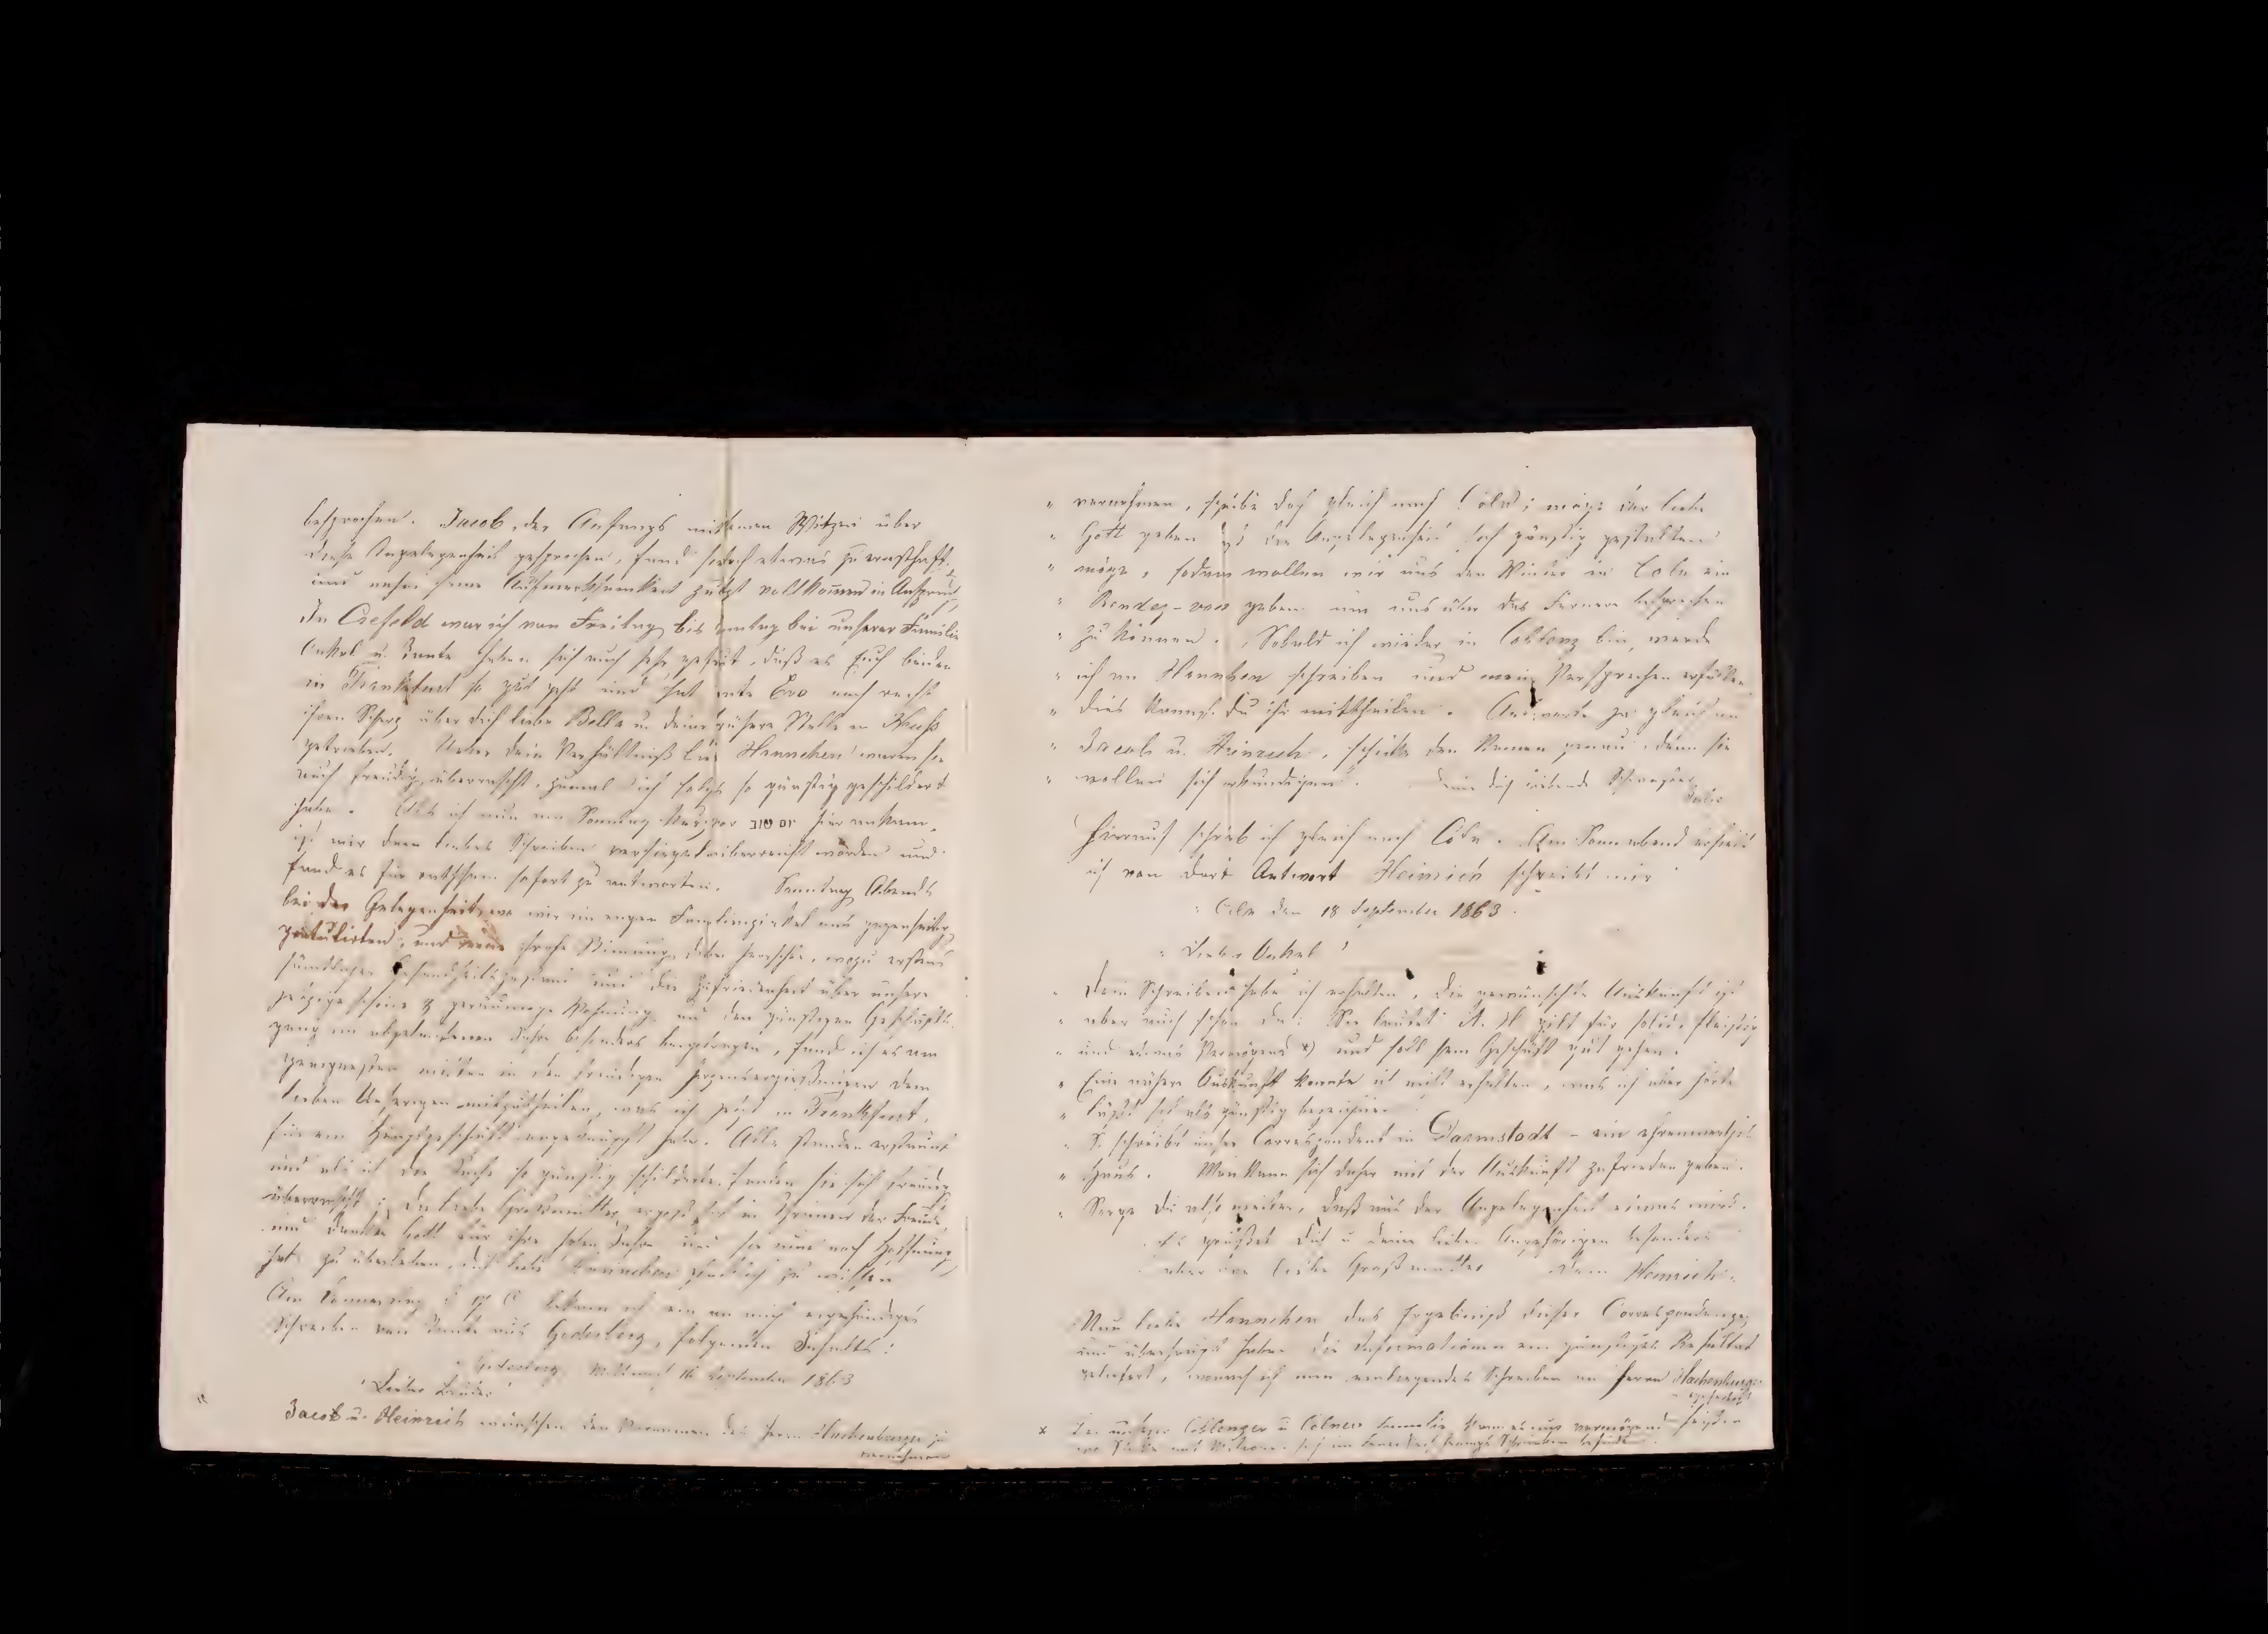 besprochen. Jacob, der Anfangs mit seinen Witzen über
diese Angelegenheit gesprochen, fand jedoch etwas zu ernsthaft
und nahm seine Aufmerksamkeit zuletzt vollkommen in Anspruch,
In Crefeld war ich von Freitag bis Sontag bei unserer Familie
Onkel u. Tante haben sich auch sehr gefreut, daß es Euch beiden
in Frankfurt so gut geht und hat Tante Eva noch recht
ihren Scherz über dich liebe Bella u. deine frühere Stelle in Neuß
getrieben. Ueber dein Verhältniß liebes Hannchen waren sie
auch freudig überrascht, zumal ich solches so günstig geschildert
habe. Als ich nun am Sonntag kurz vor יום טוב hier ankam,
ist mir dein liebes Schreiben versiegelt überreicht worden und
fand es für rathsam sofort zu antworten. Sonntag Abends
bei der Gelegenheit, wo wir im engen Familienzirkel uns gegenseitig
gratulirten, und eine frohe Stimmung dabei herrschte, wozu erstens
Gesundheitszustand und die Zufriedenheit über unsere
jetzige schöne & geräumige Wohnung und den günstigen Geschäfts-
gang im abgelaufenen Jahre besonders beigetragen, fand ich es am
geeignetsten mitten in den freudigen Herzensergießungen dem
lieben Unsrigen mitzutheilen, was ich jetzt in Frankfurt
für ein Hauptgeschäft angeknüpft habe. Alle standen erstaunt
und als ich die Sache so günstig schilderte, fanden sie sich freudig
überrascht; die liebe Großmutter ergoß sich in Thränen der Freude,
und dankte Gott für ihre hohen Jahre und sie nun noch Hoffnung
hat zu überleben, dich liebes Hannchen glücklich zu wissen
Am Donnerstag d 17 bekam ich ein an mich eigenhändiges
Schreiben von Tante aus Godesberg, folgenden Inhalts:
Godesberg Mittwoch 16 September 1863
"Lieber Bruder
Jacob u. Heinrich wünschen den Vornamen des Herrn Hachenburger zu
vernehmen
" vernehmen, schreibe doch gleich nach Cöln; möge der liebe
" Gott geben daß die Angelegenheit sich günstig gestalten
" möge, sodann wollen wir uns den Winter in Cöln ein
" Rendez-vous geben um uns über das Fernere besprechen
" zu können. Sobald ich wieder in Coblenz bin, werde
" ich an Hannchen schreiben und mein Versprechen erfüllen
" dies kannst du ihr mittheilen. Antworte ja gleich an
" Jacob u. Heinrich, schicke den Namen genau, denn sie
" wollen sich erkundigen". Deine dich liebende Schwester
Hierauf schrieb ich gleich nach Cöln. Am Sonnabend erhielt
ich von dort Antwort Heinrich schreibt mir
" Cöln den 18 September 1863.
" Lieber Onkel!
" Dein Schreiben habe ich erhalten, die gewünschte Auskunft ist
" aber auch schon da: Sie lautet: A. H. gilt für solid, fleißig
" und etwas Vermögend x) und soll sein Geschäft gut gehen.
" Eine nähere Auskunft konnte ich nicht erhalten, was ich aber hörte
" läßt sich als günstig bezeichnen
" So schreibt unser Correspondent in Darmstadt - ein ehrenwerthes
" Haus. Man kann sich daher mit der Auskunft zufrieden geben.
" Sorge du also weiter, daß aus der Angelegenheit etwas wird.
" Es grüßet dich u deine lieben Angehörigen besonders
" aber die liebe Großmutter Dein Heinrich."
Nun liebe Hannchen das Ergebniß dieser Correspondenze,
und überhaupt haben die Informationen ein günstiges Resultat
geliefert, wonach ich nun einliegendes Schreiben an Herrn Hachenburger
x Bei unserer Coblenzer u Cölner Familie kann etwas vermögend heißen